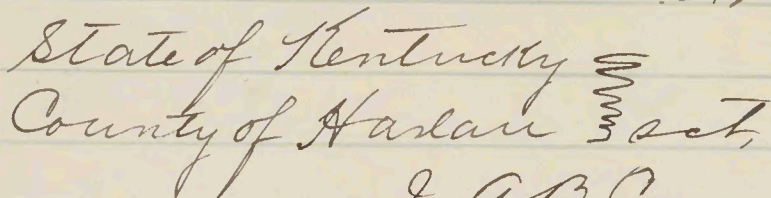 State of Kentucky
County of Harlan sct,
I A B C